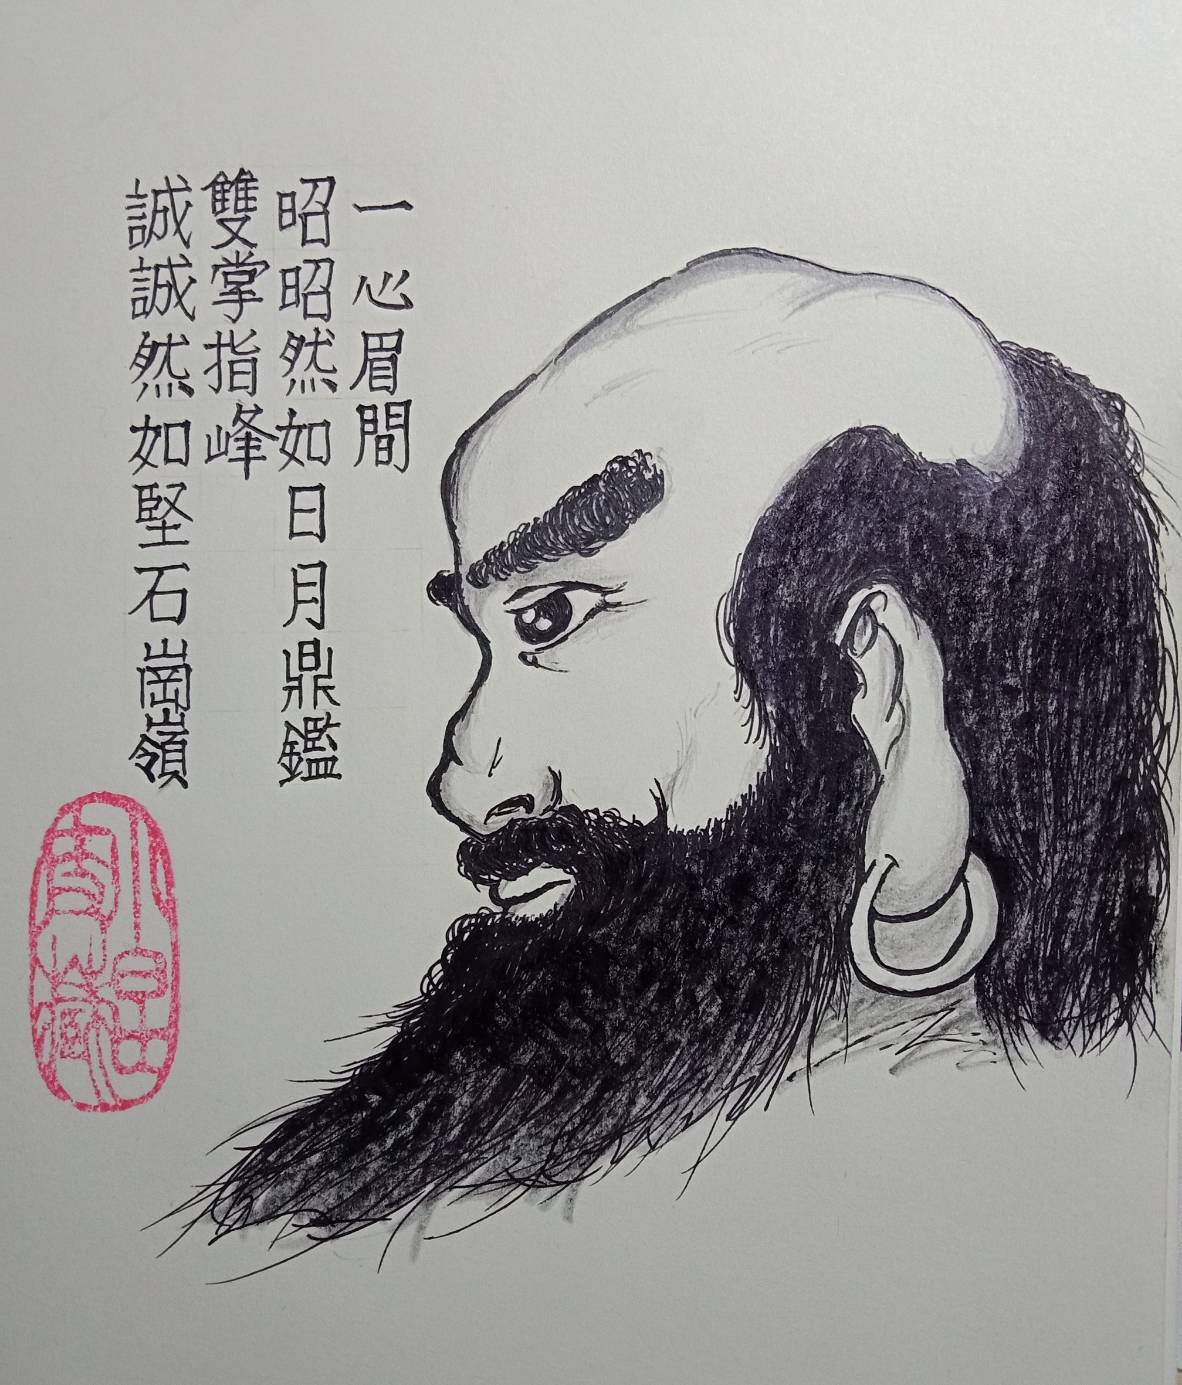 一心眉間
昭昭然如日月鼎鑑
雙掌指峰
誠誠然如堅石崗嶺